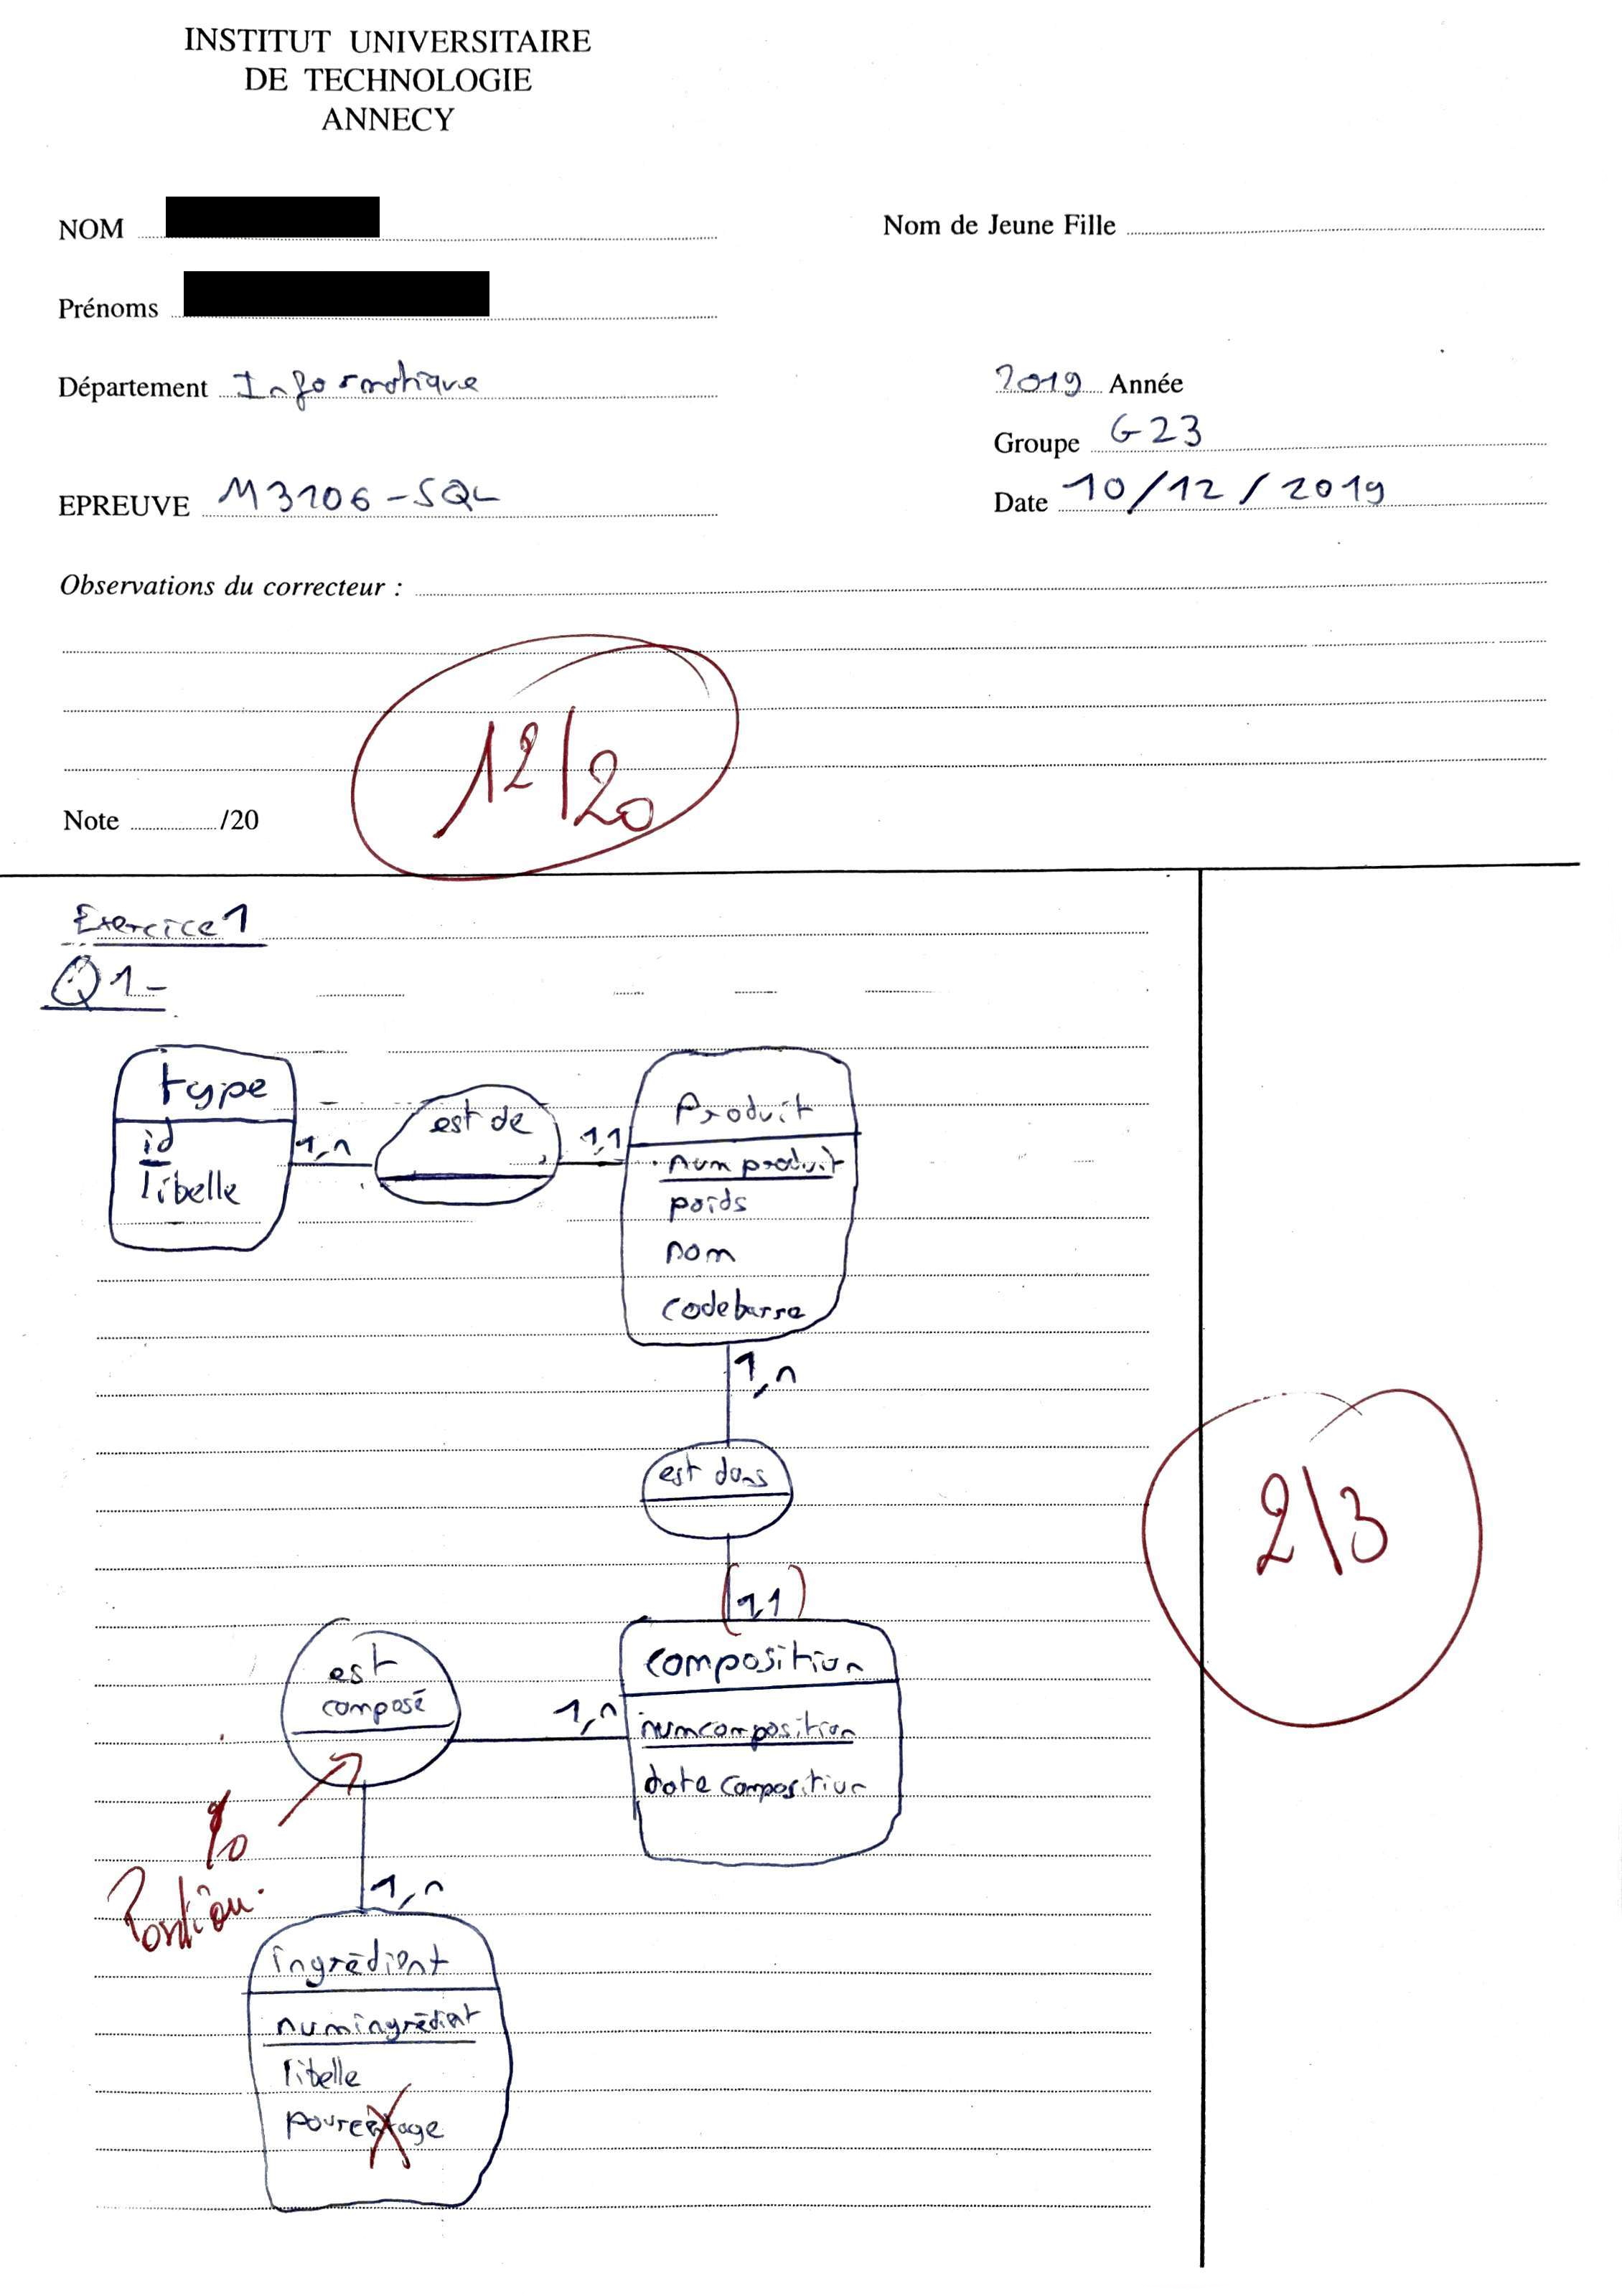 INSTITUT UNIVERSITAIRE
DE TECHNOLOGIE
ANNECY
NOM
Nom de Jeune Fille
Prénoms
Département Informatique
2019 Année
Groupe G23
EPREUVE M3106-SQL
Date 10/12/2019
Observations du correcteur :
12/20
Note /20
Exercice 1
Q1-
type
id
libelle
1,n
est de
1,1
Produit
numproduit
poids
nom
codebarre
1,n
est dans
(1,1)
2/3
composition
numcomposition
date composition
1,n
est
composé
%
Position
1,n
ingrédient
numingrédient
libelle
pourcentage